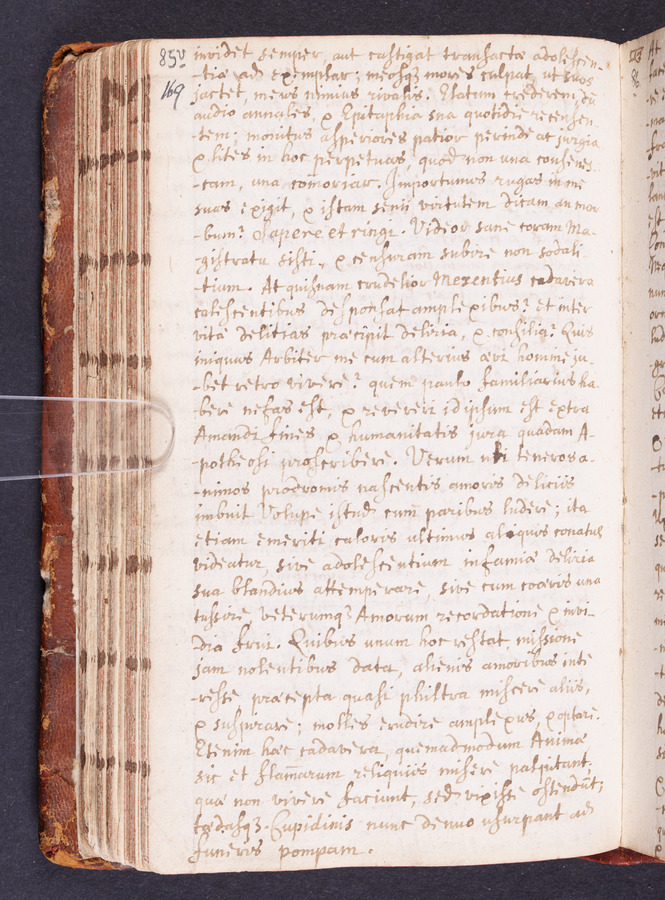 85v invidet semper, aut castigat transactæ adolescen-
169 -tiæ ad exemplar; meosq; mores culpat, ut suos
jactet, meus nimius rivalis. Elatum crederem, dū
audio annales, & Epitaphia sua quotidie recensen-
-tem; monitus asperiores patior perinde ac jurgia
& lites in hoc perpetuas, quod non una consenes-
-cam, una com̄oriar. Importunus rugas in me
suas exigit, & istam senii virtutem dicam an mor-
-bum? Sapere et ringi. Videor sane coram Ma-
-gistratu sisti, & censuram subire non sodali-
-tium. At quisnam crudelior Mezentius cadavera
calescentibus desponsat amplexibus? et inter
vitæ delitias præcipit deliria, & consilia? Quis
iniquus Arbiter me cum alterius ævi homine ju-
-bet retro vivere? quem paulo familiarius ha-
-bere nefas est, & revereri id ipsum est extra
Amandi fines & humanitatis jura quadam A-
-potheosi proscribere. Verum ubi teneros a-
-nimos prodromis nascentis amoris deliciis
imbuit Volupe istud cum paribus ludere; ita
etiam emeriti caloris ultimus aliquis conatus
videatur, sive adolescentium infamiæ deliria
sua blandius attemperare, sive cum coævis una
tussire, veterumq; Amorum recordatione & invi-
-dia frui. Quibus unum hoc restat, missione
jam nolentibus data, alienis amoribus inte-
-resse præcepta quasi philtra miscere aliis,
& suspirare; molles erudire amplexus, & optare.
Etenim hæc cadavera, quemadmodum Animæ
sic et flam̄arum reliquiis misere palpitant.
quæ non vivere faciunt, sed vixisse ostendūt;
tædasq; Cupidinis nunc denuo usurpant ad
funeris pompam.